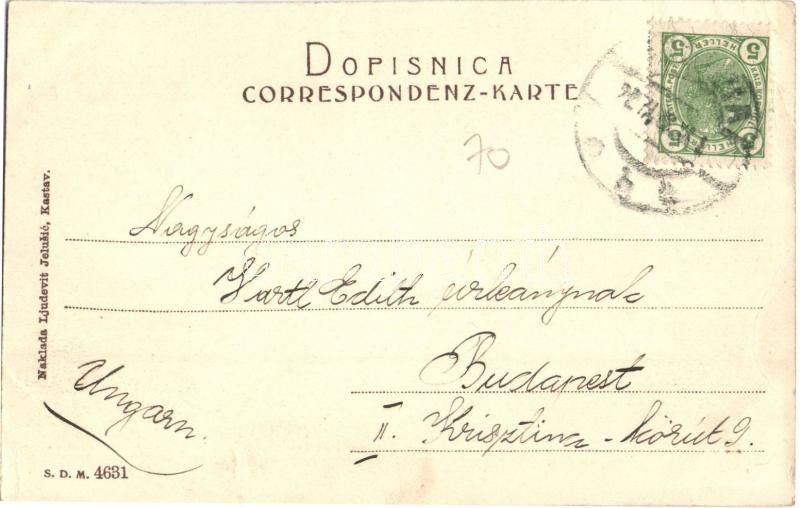 DOPISNICA
CORRESPONDENZ-KARTE
5 HELLER 5
70
Nagyságos
Edith úrleánynak
Budapest
II. Krisztina-körút 9.
Ungarn.
Naklada Ljudevit Jelušić, Kastav.
S. D. M. 4631